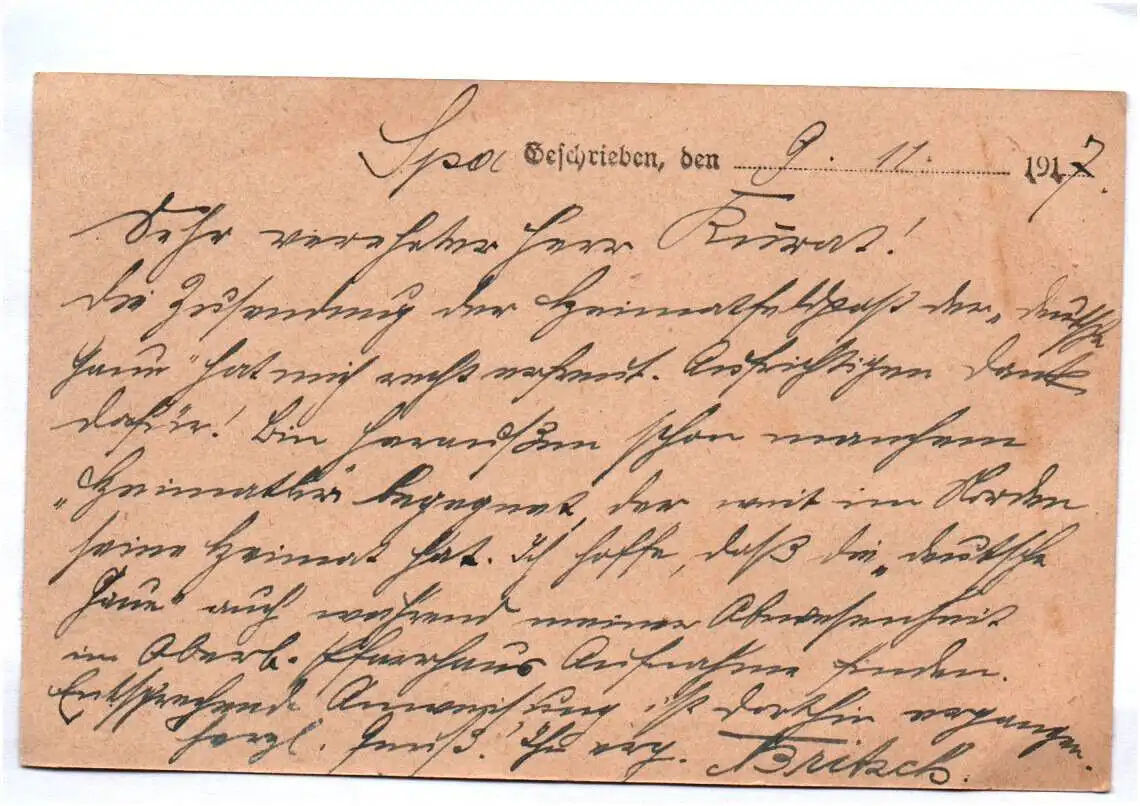 Spa Geschrieben, den 9. 11. 1917.
Sehr verehrter Herr Kurat!
Die Zusendung der Heimatfeldpost der „deutsche
Gaue" hat mich recht erfreut. Aufrichtigen Dank
dafür! Bin heraußen schon manchem
begegnet der weit im Norden
seine Heimat hat. Ich hoffe, daß die „deutsche
Gaue" auch während meiner Abwesenheit
im Oberb. Pfarrhaus Aufnahme finden.
Entsprechende Anweisung ist dorthin ergangen.
Herzl. Gruß! Ihr erg. Britzch.